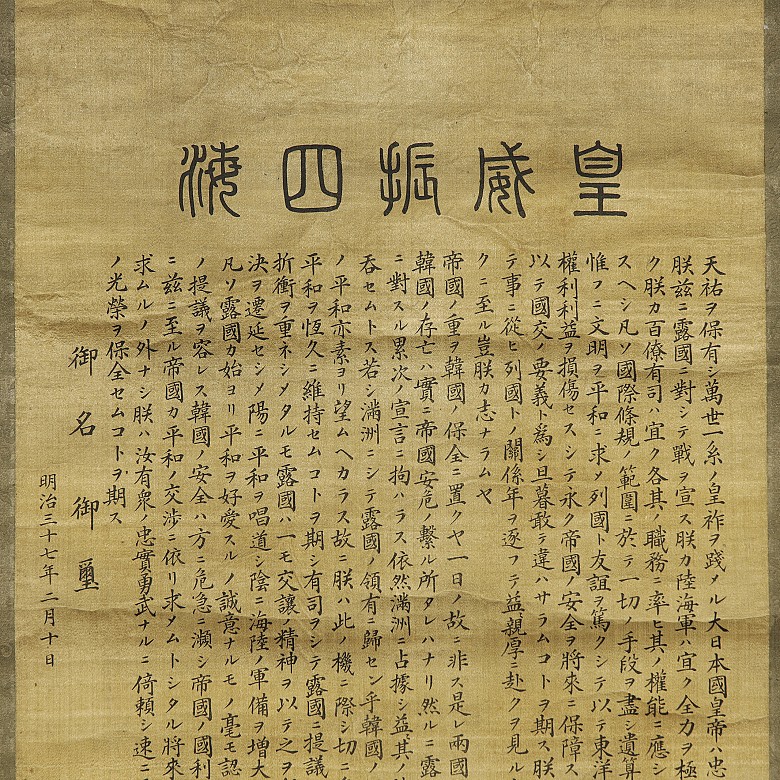 皇威振四海
天祐ヲ保有シ萬世一系ノ皇祚ヲ踐メル大日本國皇帝ハ忠
朕茲ニ露國ニ對シテ戰ヲ宣ス朕カ陸海軍ハ宜ク全力ヲ極
ク朕カ百僚有司ハ宜ク各其ノ職務ニ率ヒ其ノ權能ニ應シ
スヘシ凡ソ國際條規ノ範圍ニ於テ一切ノ手段ヲ盡シ遺算
惟フニ文明ヲ平和ニ求メ列國ト友誼ヲ篤クシテ以テ東洋
權利利益ヲ損傷セスシテ永ク帝國ノ安全ヲ將來ニ保障ス
以テ國交ノ要義ト爲シ旦暮敢テ違ハサラムコトヲ期ス朕
テ事ニ從ヒ列國トノ關係年ヲ逐フテ益親厚ニ赴クヲ見ル
クニ至ル豈朕カ志ナラムヤ
帝國ノ重ヲ韓國ノ保全ニ置クヤ一日ノ故ニ非ス是レ兩國
韓國ノ存亡ハ實ニ帝國安危ノ繋ル所タレハナリ然ルニ露
ニ對スル累次ノ宣言ニ拘ハラス依然滿洲ニ占據シ益其ノ
吞セムトス若シ滿洲ニシテ露國ノ領有ニ歸セン乎韓國ノ
ノ平和亦素ヨリ望ムヘカラス故ニ朕ハ此ノ機ニ際シ切ニ
平和ヲ恆久ニ維持セムコトヲ期シ有司ヲシテ露國ニ提議
折衝ヲ重ネシメタルモ露國ハ一モ交讓ノ精神ヲ以テ之ヲ
決ヲ遷延セシメ陽ニ平和ヲ唱道シ陰ニ海陸ノ軍備ヲ増大
凡ソ露國カ始ヨリ平和ヲ好愛スルノ誠意ナルモノ毫モ認
ノ提議ヲ容レス韓國ノ安全ハ方ニ危急ニ瀕シ帝國ノ國利
ニ茲ニ至ル帝國カ平和ノ交渉ニ依リ求メムトシタル將來
求ムルノ外ナシ朕ハ汝有衆ノ忠實勇武ナルニ倚頼シ速ニ
ノ光榮ヲ保全セムコトヲ期ス
御名御璽
明治三十七年二月十日